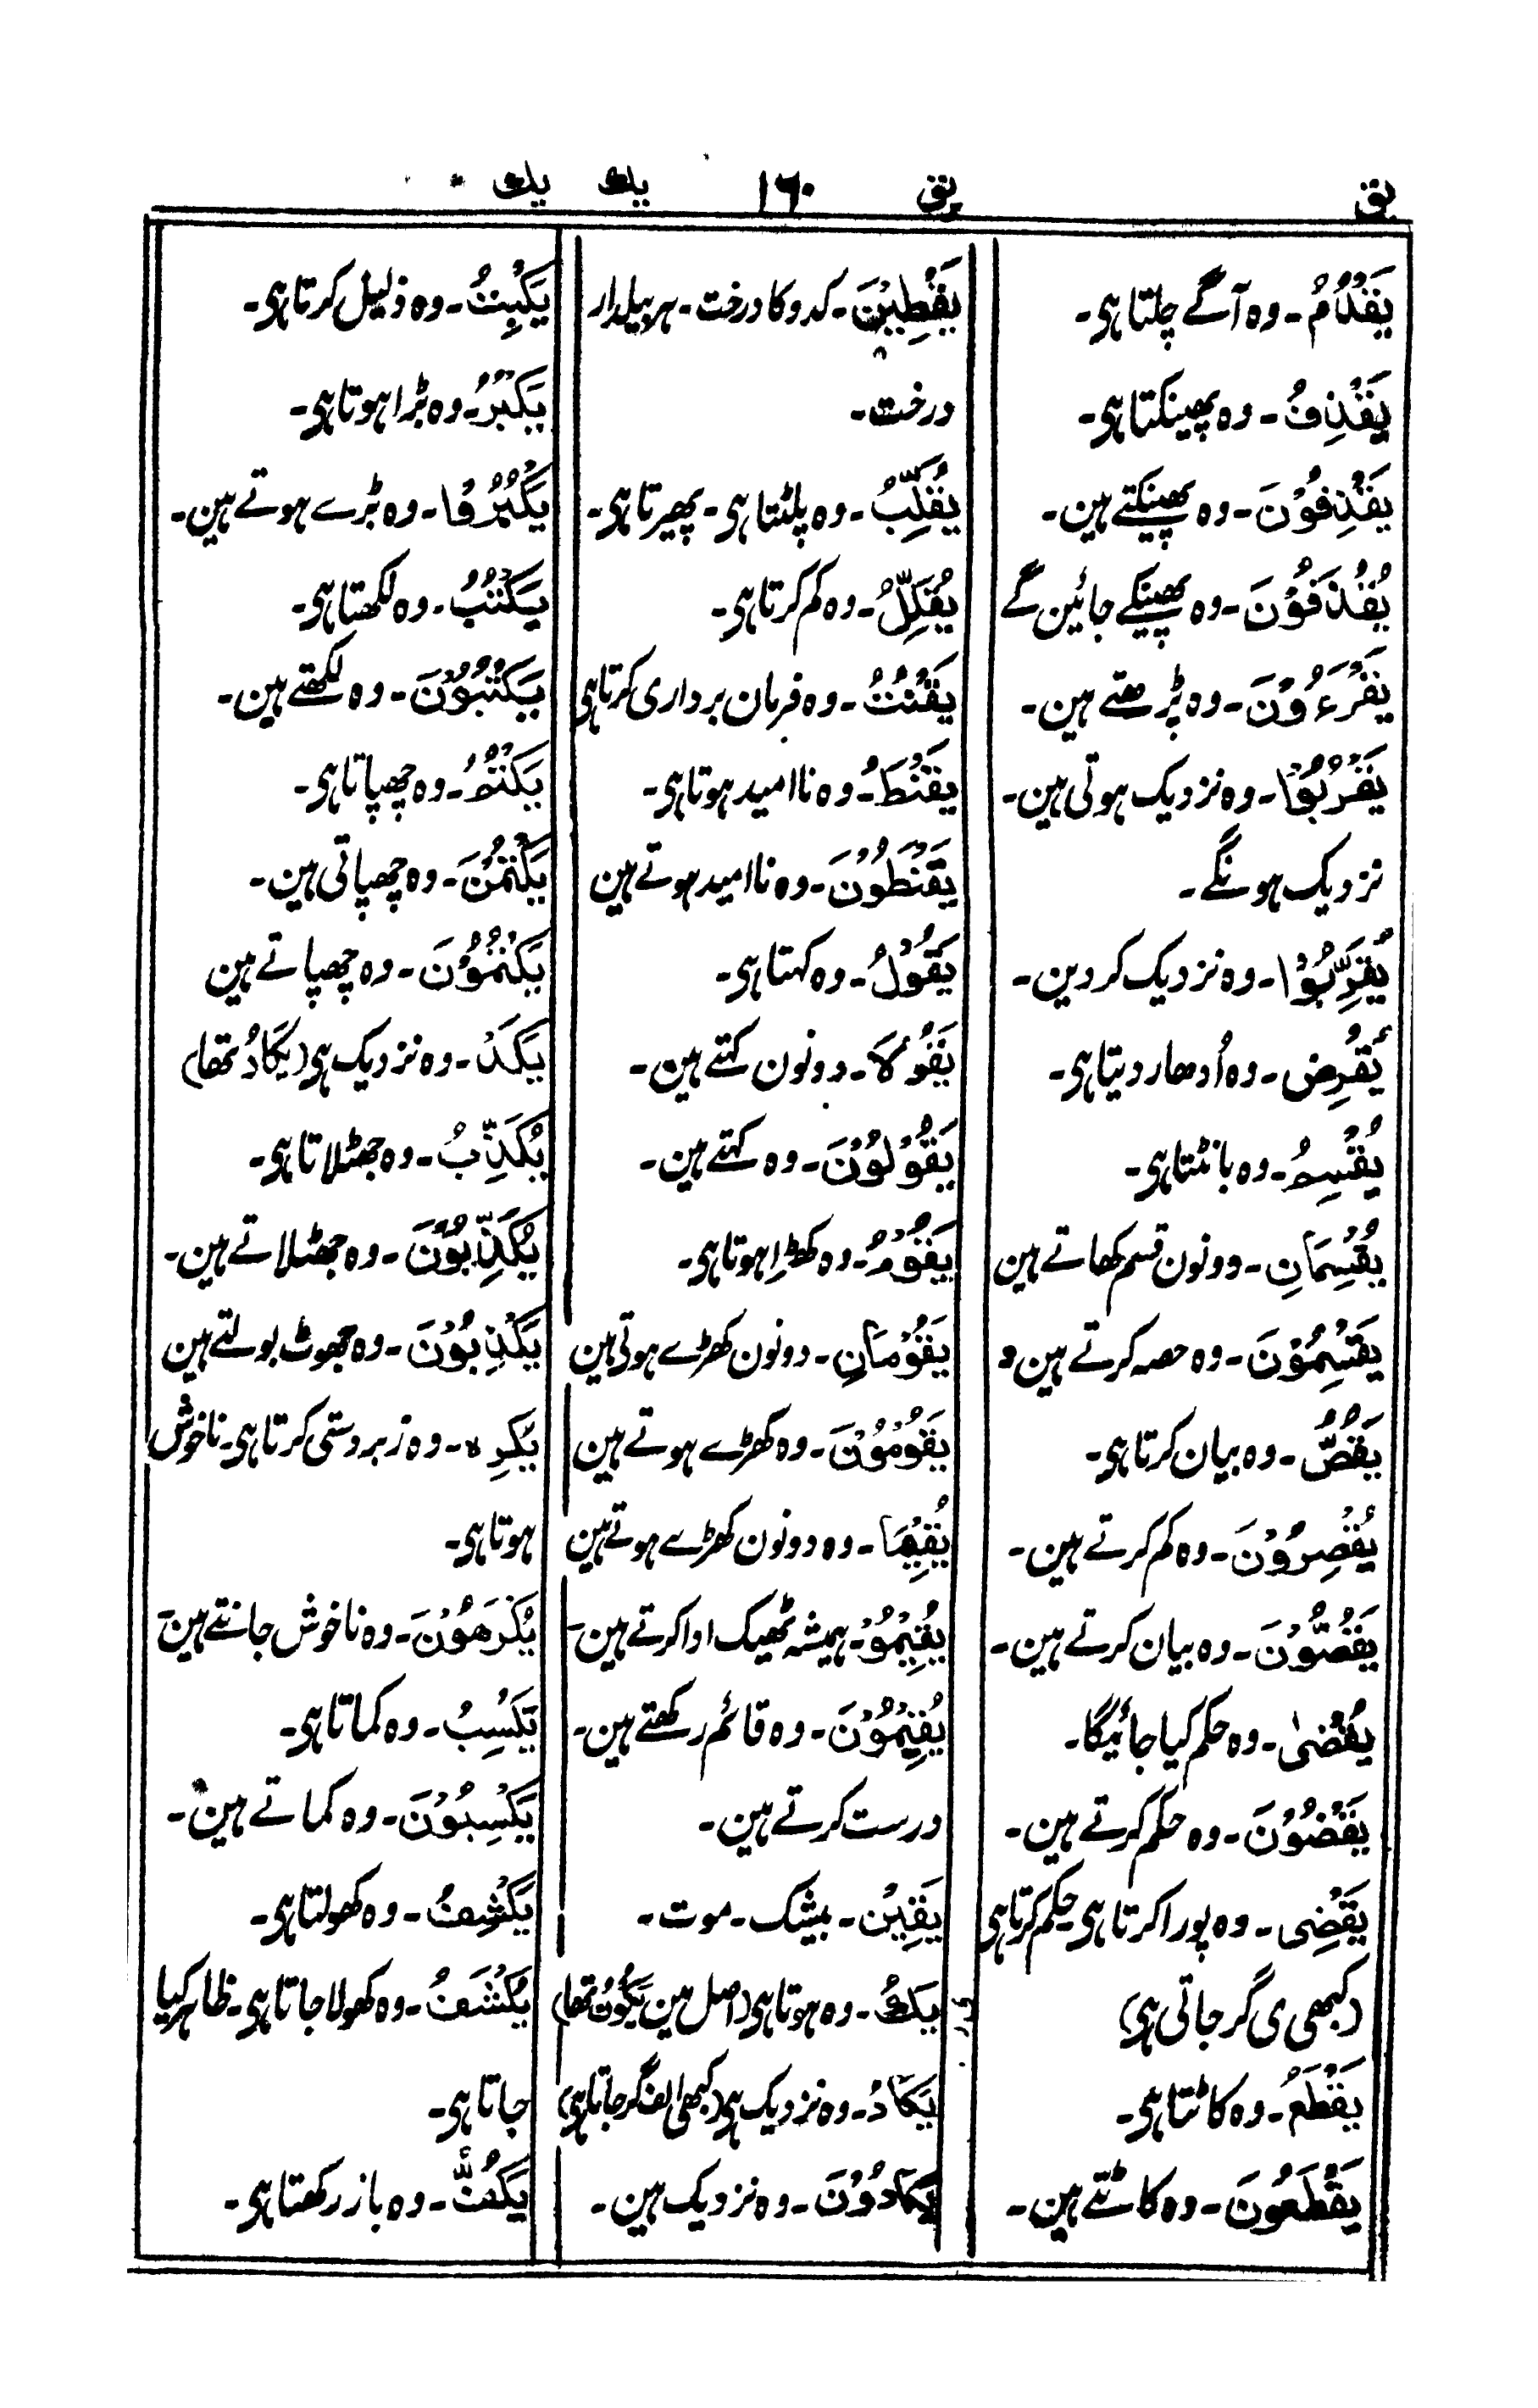 یق
یق
١٦٠
یك
یك
يَقْدُمُ ۔ وہ آگے چلتا ہی۔
يَقْذِفُ ۔ وہ پھینکتا ہی۔
يَقْذِفُوْنَ ۔ وہ پھینکتے ہین۔
يُقْذَفُوْنَ ۔ وہ پھینکے جائین گے
يَقْرَءُوْنَ ۔ وہ پڑھتے ہین۔
يَقْرَبُوْا ۔ وہ نزدیک ہوتی ہین۔
نزدیک ہونگے۔
يُقَرِّبُوْا ۔ وہ نزدیک کردین۔
يُقْرِضُ ۔ وہ اُدھار دیتا ہی۔
يُقْسِمُ ۔ وہ بانٹتا ہی۔
يُقْسِمَانِ ۔ دونون قسم کھاتے ہین
يَقْسِمُوْنَ ۔ وہ حصہ کرتے ہین و
يَقُصُّ ۔ وہ بیان کرتا ہی۔
يُقْصِرُوْنَ ۔ وہ کم کرتے ہین۔
يَقُصُّوْنَ ۔ وہ بیان کرتے ہین۔
يُقْضٰى ۔ وہ حکم کیا جائیگا۔
يَقْضُوْنَ ۔ وہ حکم کرتے ہین۔
يَقْضِى ۔ وہ پورا کرتا ہی۔حکم کرتا ہی
(کبھی ی گر جاتی ہی)
يَقْطَعُ ۔ وہ کاٹتا ہی۔
يَقْطَعُونَ ۔ وہ کاٹتے ہین۔
يَقْطِيْنَ ۔ کدو کا درخت ۔ ہر بیلدار
درخت۔
يُقَلِّبُ ۔ وہ پلٹتا ہی ۔ پھیرتا ہی۔
يُقَلِّلُ ۔ وہ کم کرتا ہی۔
يَقْنُتُ ۔ وہ فرمان برداری کرتا ہی
يَقْنَطُ ۔ وہ نا امید ہوتا ہی۔
يَقْنَطُوْنَ ۔ وہ نا امید ہوتے ہین
يَقُوْلُ ۔ وہ کہتا ہی۔
يَقُوْلَا ۔ دونون کہتے ہین۔
يَقُوْلُوْنَ ۔ وہ کہتے ہین۔
يَقُوْمُ ۔ وہ کھڑا ہوتا ہی۔
يَقُوْمَانِ ۔ دونون کھڑے ہوتی ہین
يَقُوْمُوْنَ ۔ وہ کھڑے ہوتے ہین
يُقِيْمَا ۔ وہ دونون کھڑے ہوتے ہین
يُقِيْمُوْ ۔ ہمیشہ ٹھیک ادا کرتے ہین۔
يُقِيْمُوْنَ ۔ وہ قائم رکھتے ہین۔
درست کرتے ہین۔
يَقِيْنُ ۔ بیشک ۔ موت۔
يَكُ ۔ وہ ہوتا ہی (اصل مین يَكُوْنُ تھا)
يَكَادُ ۔ وہ نزدیک ہی (کبھی الف گر جاتا ہی)
يَكَادُوْنَ ۔ وہ نزدیک ہین۔
يَكْبِتُ ۔ وہ ذلیل کرتا ہی۔
يَكْبُرُ ۔ وہ بڑا ہوتا ہی۔
يَكْبُرُوا ۔ وہ بڑے ہوتے ہین۔
يَكْتُبُ ۔ وہ لکھتا ہی۔
يَكْتُبُوْنَ ۔ وہ لکھتے ہین۔
يَكْتُمُ ۔ وہ چھپاتا ہی۔
يَكْتُمْنَ ۔ وہ چھپاتی ہین۔
يَكْتُمُوْنَ ۔ وہ چھپاتے ہین
يَكَدُ ۔ وہ نزدیک ہی (يَكَادُ تھا)
يُكَذِّبُ ۔ وہ جھٹلاتا ہی۔
يُكَذِّبُوْنَ ۔ وہ جھٹلاتے ہین۔
يَكْذِبُوْنَ ۔ وہ جھوٹ بولتے ہین
يُكْرِه ۔ وہ زبردستی کرتا ہی۔ناخوش
ہوتا ہی۔
يُكْرَهُوْنَ ۔ وہ ناخوش جانتے ہین۔
يَكْسِبُ ۔ وہ کماتا ہی۔
يَكْسِبُوْنَ ۔ وہ کماتے ہین۔
يَكْشِفُ ۔ وہ کھولتا ہی۔
يُكْشَفُ ۔ وہ کھولا جاتا ہی۔ظاہر کیا
جاتا ہی۔
يَكُفُّ ۔ وہ باز رکھتا ہی۔